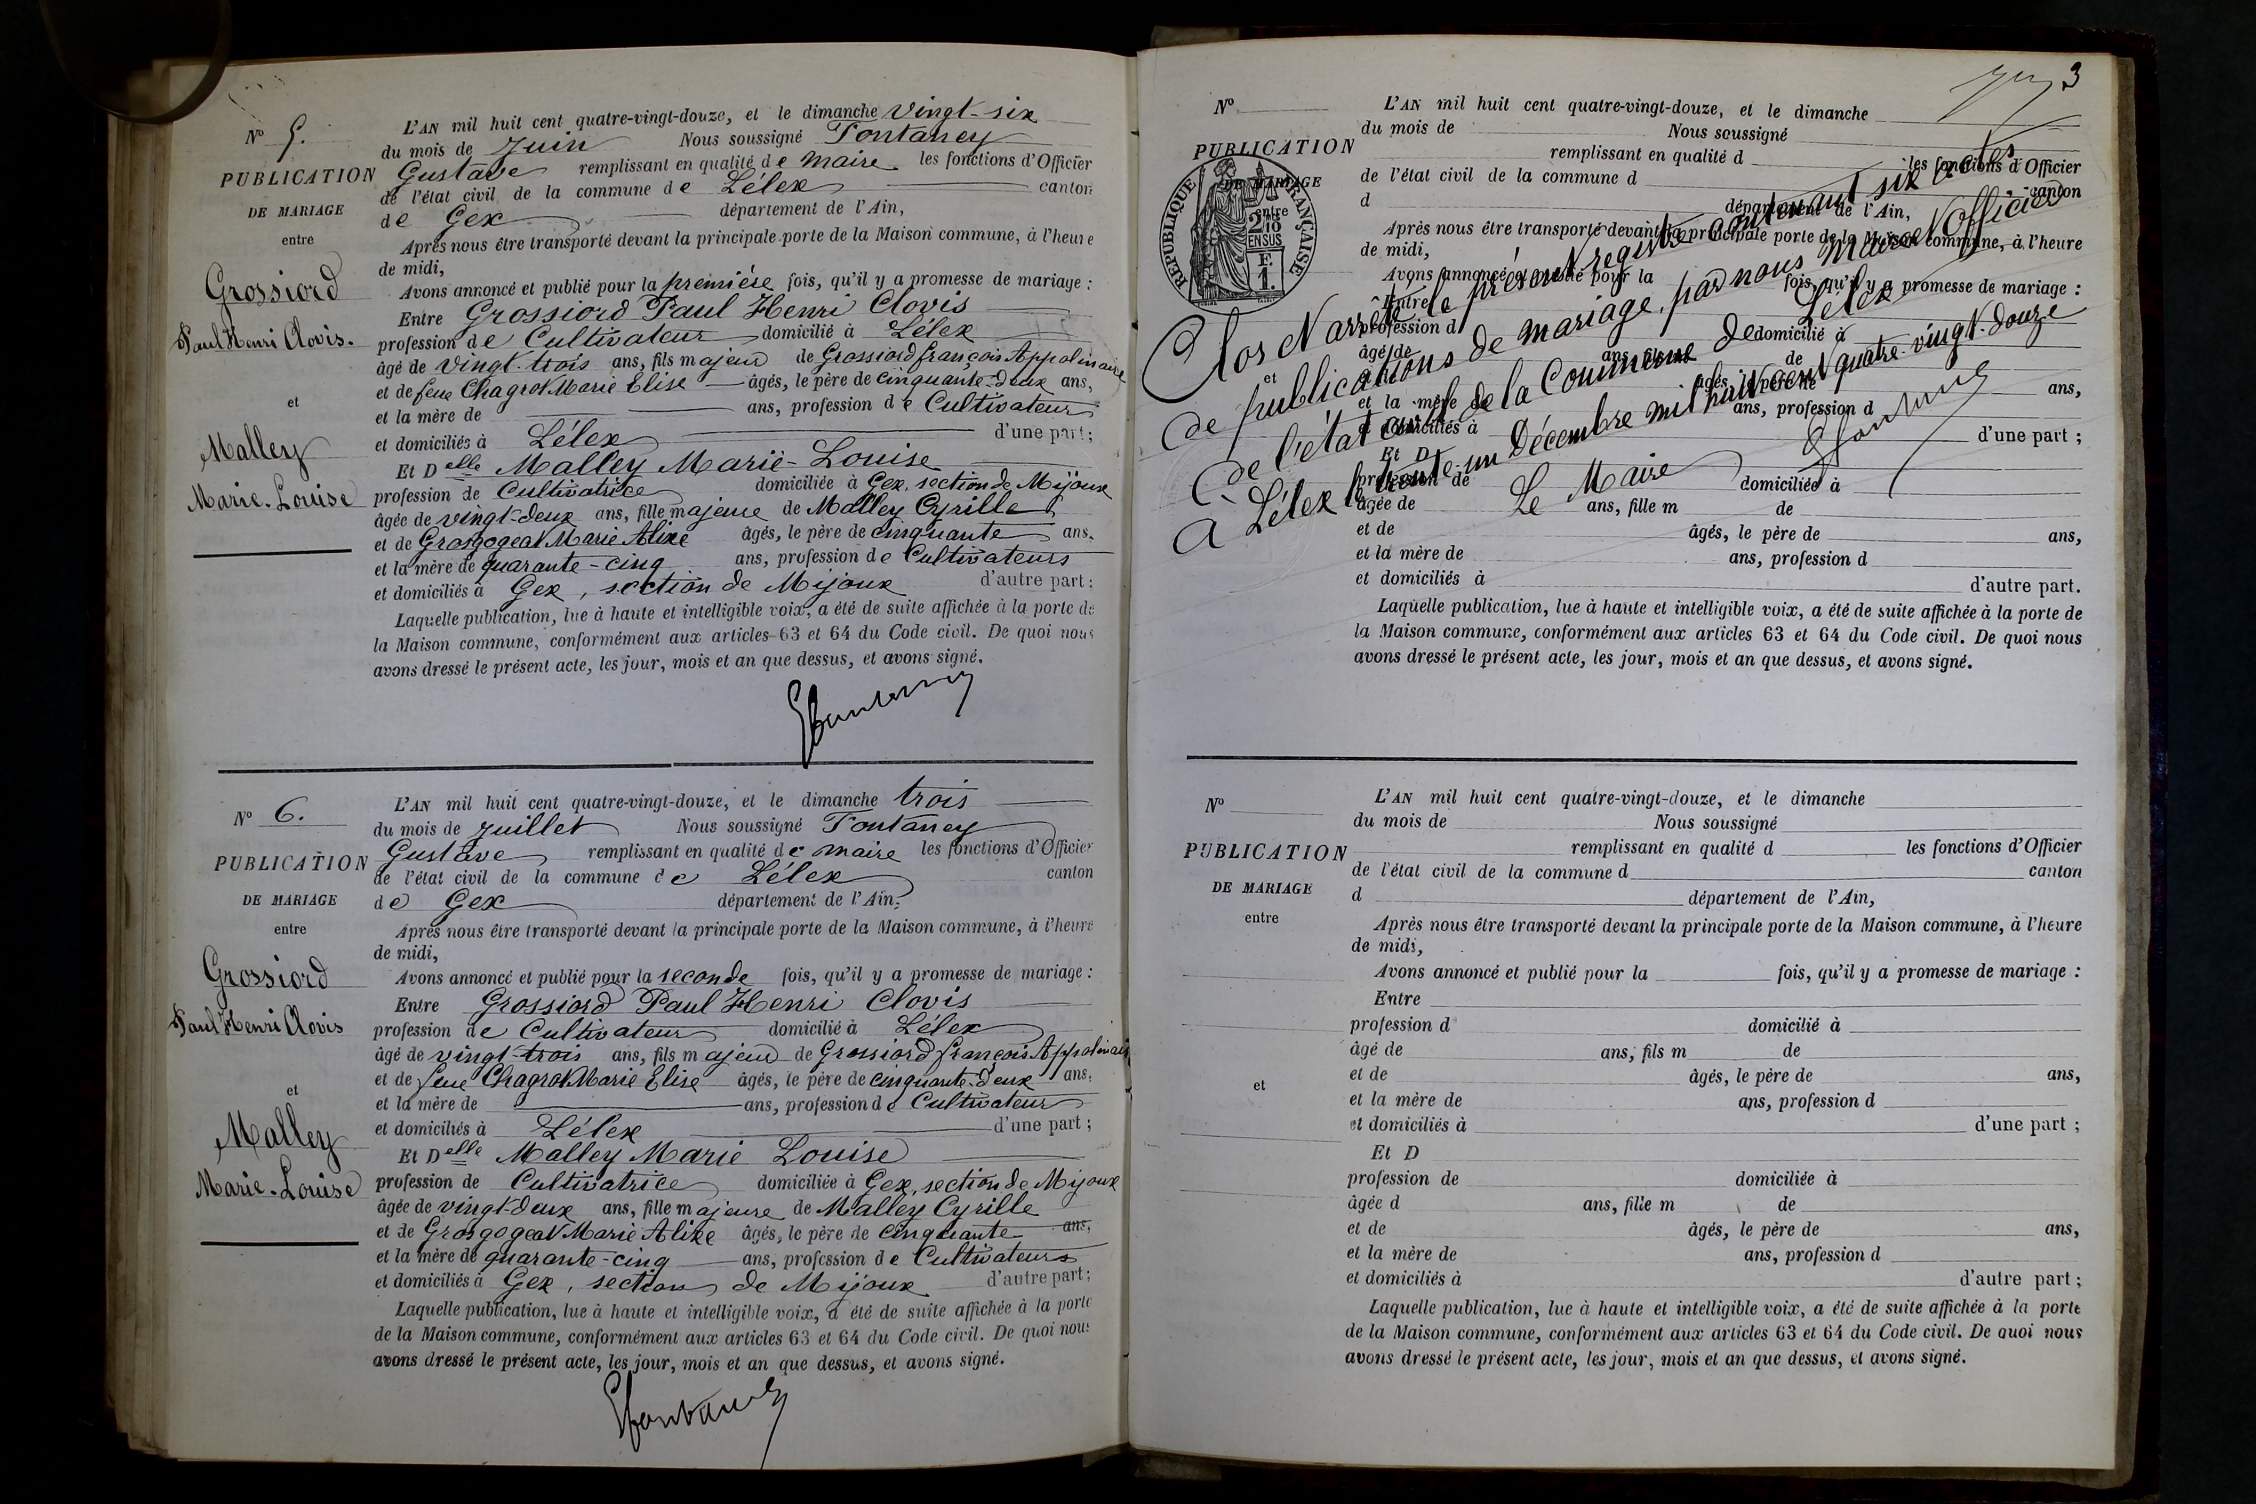 Nº 5.
PUBLICATION
DE MARIAGE
entre
Grossiord
Paul Henri Clovis.
et
Malley
Marie-Louise
L'AN mil huit cent quatre-vingt-douze, et le dimanche vingt-six
du mois de Juin Nous soussigné Fontaney
Gustave remplissant en qualité de maire les fonctions d'Officier
de l'état civil de la commune de Lélex canton
de Gex département de l'Ain,
Après nous être transporté devant la principale porte de la Maison commune, à l'heure
de midi,
Avons annoncé et publié pour la première fois, qu'il y a promesse de mariage :
Entre Grossiord Paul Henri Clovis
profession de Cultivateur domicilié à Lélex
âgé de vingt-trois ans, fils majeur de Grossiord françois Appolinaire
et de feue Chagrot Marie Elise âgés, le père de cinquante-deux ans,
et la mère de ans, profession de Cultivateur
et domiciliés à Lélex d'une part ;
Et Delle Malley Marie-Louise
profession de Cultivatrice domiciliée à Gex, section de Mijoux
âgée de vingt-deux ans, fille majeure de Malley Cyrille
et de Grosgogeat Marie Alixe âgés, le père de cinquante ans,
et la mère de quarante-cinq ans, profession de Cultivateurs
et domiciliés à Gex, section de Mijoux d'autre part ;
Laquelle publication, lue à haute et intelligible voix, a été de suite affichée à la porte de
la Maison commune, conformément aux articles 63 et 64 du Code civil. De quoi nous
avons dressé le présent acte, les jour, mois et an que dessus, et avons signé.
GFontaney
Nº 6.
PUBLICATION
DE MARIAGE
entre
Grossiord
Paul Henri Clovis
et
Malley
Marie-Louise
L'AN mil huit cent quatre-vingt-douze, et le dimanche trois
du mois de Juillet Nous soussigné Fontaney
Gustave remplissant en qualité de maire les fonctions d'Officier
de l'état civil de la commune de Lélex canton
de Gex département de l'Ain,
Après nous être transporté devant la principale porte de la Maison commune, à l'heure
de midi,
Avons annoncé et publié pour la seconde fois, qu'il y a promesse de mariage :
Entre Grossiord Paul Henri Clovis
profession de Cultivateur domicilié à Lélex
âgé de vingt-trois ans, fils majeur de Grossiord françois Appolinaire
et de feue Chagrot Marie Elise âgés, le père de cinquante-deux ans,
et la mère de ans, profession de Cultivateur
et domiciliés à Lélex d'une part ;
Et Delle Malley Marie Louise
profession de Cultivatrice domiciliée à Gex, section de Mijoux
âgée de vingt-deux ans, fille majeure de Malley Cyrille
et de Grosgogeat Marie Alixe âgés, le père de cinquante ans,
et la mère de quarante-cinq ans, profession de Cultivateurs
et domiciliés à Gex, section de Mijoux d'autre part ;
Laquelle publication, lue à haute et intelligible voix, a été de suite affichée à la porte
de la Maison commune, conformément aux articles 63 et 64 du Code civil. De quoi nous
avons dressé le présent acte, les jour, mois et an que dessus, et avons signé.
GFontaney
3
Nº
PUBLICATION
DE MARIAGE
entre
et
RÉPUBLIQUE FRANÇAISE
2/10
EN SUS
F.
1.
L'AN mil huit cent quatre-vingt-douze, et le dimanche
du mois de Nous soussigné
remplissant en qualité d les fonctions d'Officier
de l'état civil de la commune d canton
d département de l'Ain,
Après nous être transporté devant la principale porte de la Maison commune, à l'heure
de midi,
Avons annoncé et publié pour la fois, qu'il y a promesse de mariage :
Entre
profession d domicilié à
âgé de ans, fils m de
et de âgés, le père de ans,
et la mère de ans, profession d
et domiciliés à d'une part ;
Et D
profession de domiciliée à
âgée de ans, fille m de
et de âgés, le père de ans,
et la mère de ans, profession d
et domiciliés à d'autre part.
Laquelle publication, lue à haute et intelligible voix, a été de suite affichée à la porte de
la Maison commune, conformément aux articles 63 et 64 du Code civil. De quoi nous
avons dressé le présent acte, les jour, mois et an que dessus, et avons signé.
Clos et arrêté le présent registre contenant six actes
de publications de mariage, par nous Maire et officier
de l'état civil de la Commune de Lélex
à Lélex le trente-un Décembre mil huit cent quatre-vingt-douze
Le Maire
GFontaney
Nº
PUBLICATION
DE MARIAGE
entre
et
L'AN mil huit cent quatre-vingt-douze, et le dimanche
du mois de Nous soussigné
remplissant en qualité d les fonctions d'Officier
de l'état civil de la commune d canton
d département de l'Ain,
Après nous être transporté devant la principale porte de la Maison commune, à l'heure
de midi,
Avons annoncé et publié pour la fois, qu'il y a promesse de mariage :
Entre
profession d domicilié à
âgé de ans, fils m de
et de âgés, le père de ans,
et la mère de ans, profession d
et domiciliés à d'une part ;
Et D
profession de domiciliée à
âgée d ans, fille m de
et de âgés, le père de ans,
et la mère de ans, profession d
et domiciliés à d'autre part ;
Laquelle publication, lue à haute et intelligible voix, a été de suite affichée à la porte
de la Maison commune, conformément aux articles 63 et 64 du Code civil. De quoi nous
avons dressé le présent acte, les jour, mois et an que dessus, et avons signé.